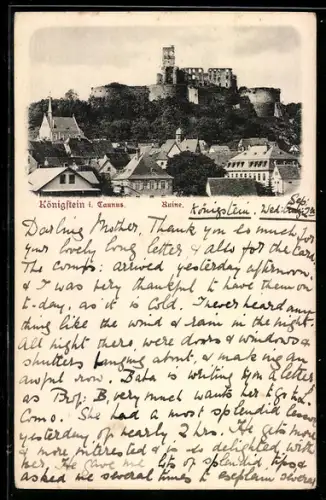 Königstein i. Taunus. Ruine.
Königstein. Wed. Sep.
Darling Mother, Thank you so much for
your lovely long letter & also for the Card.
The Combs: arrived yesterday afternoon,
& I was very thankful to have them on
t-day, as it is cold. I never heard any
thing like the wind & rain in the night.
All night there, were doors & windows &
shutters banging about, & making an
awful row. Baba is writing you a letter
as Prof: B. very much wants her to go to
Como. She had a most splendid lesson
yesterday, of nearly 2 hrs. He gets more
& more interested & is so delighted with
her. He gave me lots of splendid tips &
asked me several times to explain several